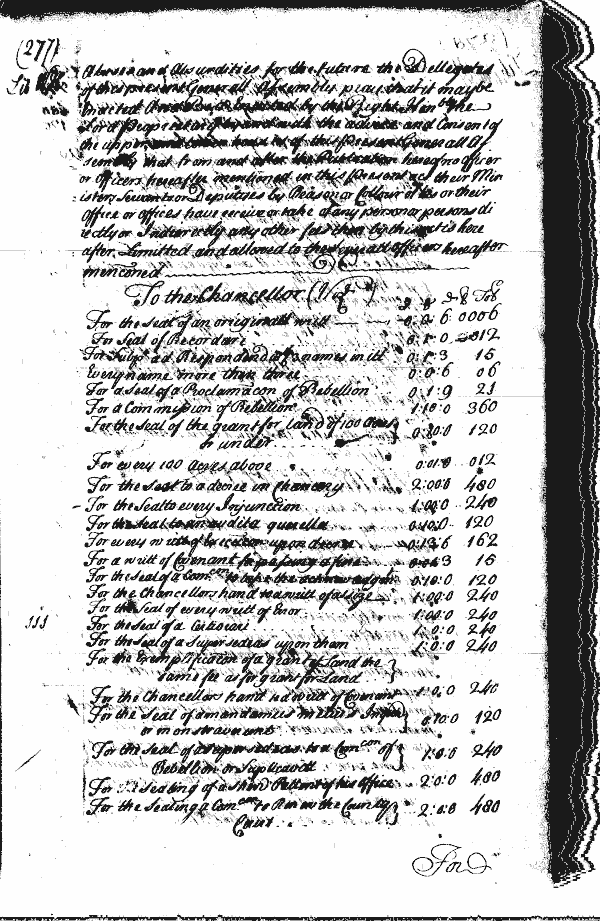 (277)
Abuses and Absurdities for the future the Dellegates
of this present Generall Assembly pray that it may be
Enacted And be it Enacted by the Right Honble the
Lord Propriet.ry by and with the advice and Consent of
the upper and lower house of this present Generall As
sembly that from and after the Publication hereof no officer
or Officers hereafter mentioned in this present act their Min
isters Servants or Deputyes by Reason or Collour of his or their
Office or offices have receive or take of any person or persons di
rectly or Indirectly any other fees then by this act is here
after Limitted and allowed to the severall officers hereafter
mencioned
To the Chancellor
lb Tob
For the Seal of an originall writt 0:0:6 0006
For Seal of Recordare 0:1:0 012
For Subp: ad Respondend: names in itt 0:1:3 15
Every name more than three 0:0:6 06
For a Seal of a Proclamacon of Rebellion 0:1:9 21
For a Commission of Rebellion 1:10:0 360
For the Seal of the grant for Land of 100 Acres
or under 0:10:0 120
For every 100 Acres above 0:01:0 012
For the Seal to a decree in Chancery 2:00:0 480
For the Seal to every Injunction 1:00:0 240
For the Seal to an audita querella 0:10:0 120
For every writt of Execucon upon decree 0:13:6 162
For a writt of Covenant for passing a fine 0:01:3 15
For the Seal of a Comcon to take the acknowledgmt 0:10:0 120
For the Chancellors hand to a writt of assize 1:00:0 240
For the Seal of every writt of Error 1:00:0 240
For the Seal of a Certiorari 1:0:0 240
For the Seal of a Supersedeas upon them 1:0:0 240
For the Exemplification of a grant of Land the
same fee as for grant for Land
For the Chancellors hand to a writt of Covenant 1:0:0 240
For the Seal of a mandamus
or monstraverunt 0:10:0 120
For the Seal of a Supersedeas to a Comcon of
Rebellion or Suplicavit 1:0:0 240
For Sealing of a Sheriffs Pattent of his Office 2:0:0 480
For the Sealing a Comcon to Renew the County
Court 2:0:0 480
For